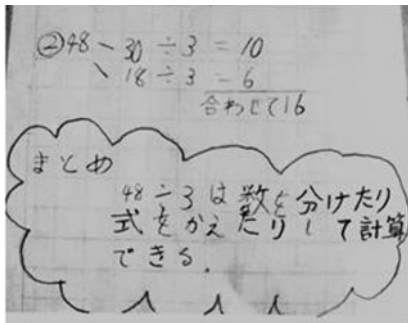 ②48 30÷3=10
18÷3=6
合わせて16
まとめ
48÷3は数を分けたり
式をかえたりして計算
できる.